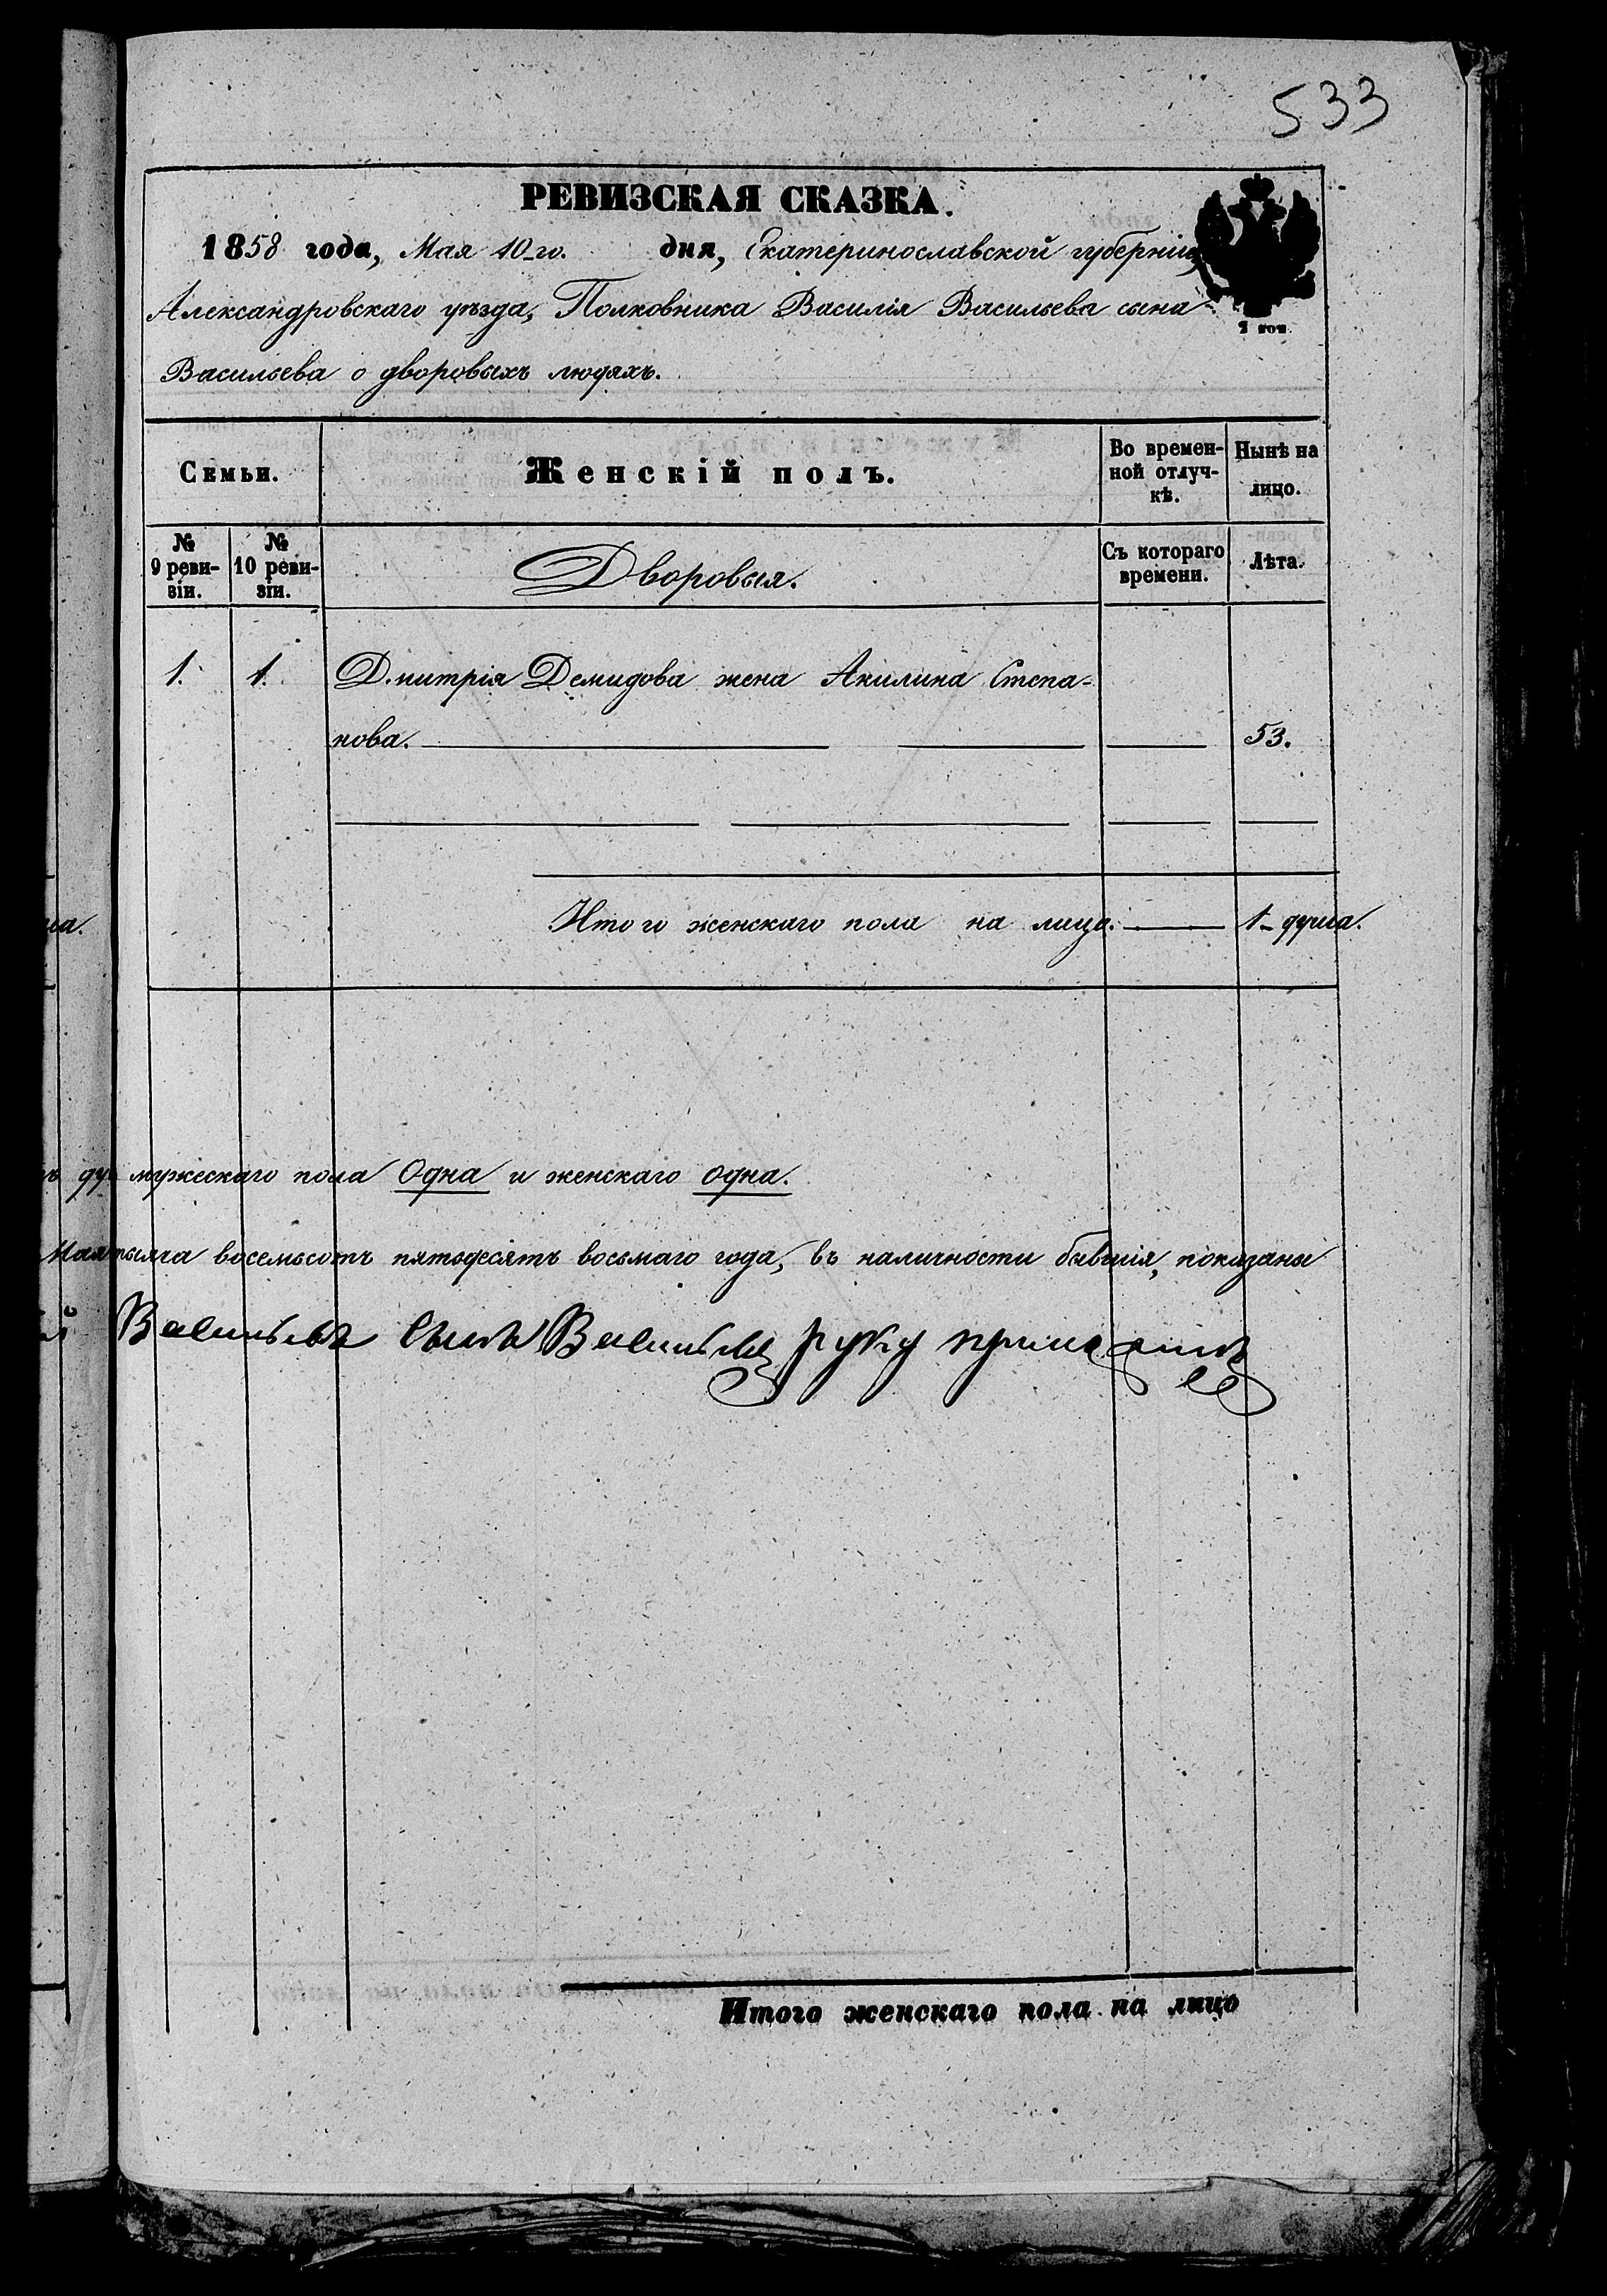 533
РЕВИЗСКАЯ СКАЗКА.
1858 года, Мая 10-го. дня, Екатеринославской губерніи,
Александровскаго уѣзда, Полковника Василія Васильева сына
2 коп.
Васильева о дворовыхъ людяхъ.
Семьи. Женскій полъ. Во времен-ной отлуч-кѣ. Нынѣ на лицо.
№ 9 реви-зіи. № 10 реви-зіи. Дворовыя. Съ котораго времени. Лѣта.
1. 1. Дмитрія Демидова жена Акилина Степа-
нова. 53.
Итого женскаго пола на лицо. 1-душа.
мужескаго пола Одна и женскаго одна.
Мая тысяча восемьсотъ пятьдесятъ восьмаго года, въ наличности бывшія, показаны
Васильевъ сынъ Васильевъ руку приложилъ
Итого женскаго пола на лицо